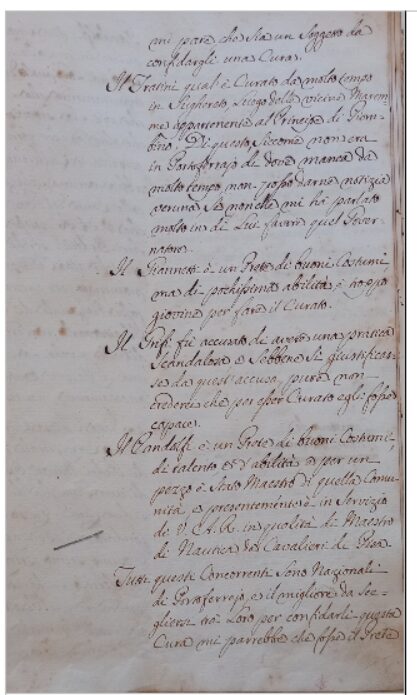 mi pare che sia un Soggeto da
confidargli una Cura.
Il Tratini qual'è Curato da molto tempo
in Luogo delle vicine Marem-
me appartenente al Principe di Piom-
bino. Di questo, siccome non era
in Portoferrajo di dove manca da
molto tempo non posso darne notizia
veruna se non che mi hà parlato
molto in di Lui favore quel Gover-
natore.
Il Giannetti è un Prete di buoni Costumi,
ma di pochissima abilità è troppo
giovine per fare il Curato.
Il fù accusato di avere una pratica
Scandalosa e Sebbene si giustificas-
se da quest'accusa, pure non
crederei che per esser Curato egli fosse
capace.
Il Candolfi è un Prete di buoni Costumi,
di talento ed abilità e per un
pezzo è Stato Maestro di quella Comu-
nità, e presentemente è in Servizio
di V.A.R. in qualità di Maestro
di Nautica de Cavalieri di Pisa.
Tutti questi Concorrenti Sono Nazionali
di Portoferrajo, e il migliore da Sce-
gliersi trà Loro per confidarli questa
Cura mi parrebbe che fosse il Prete